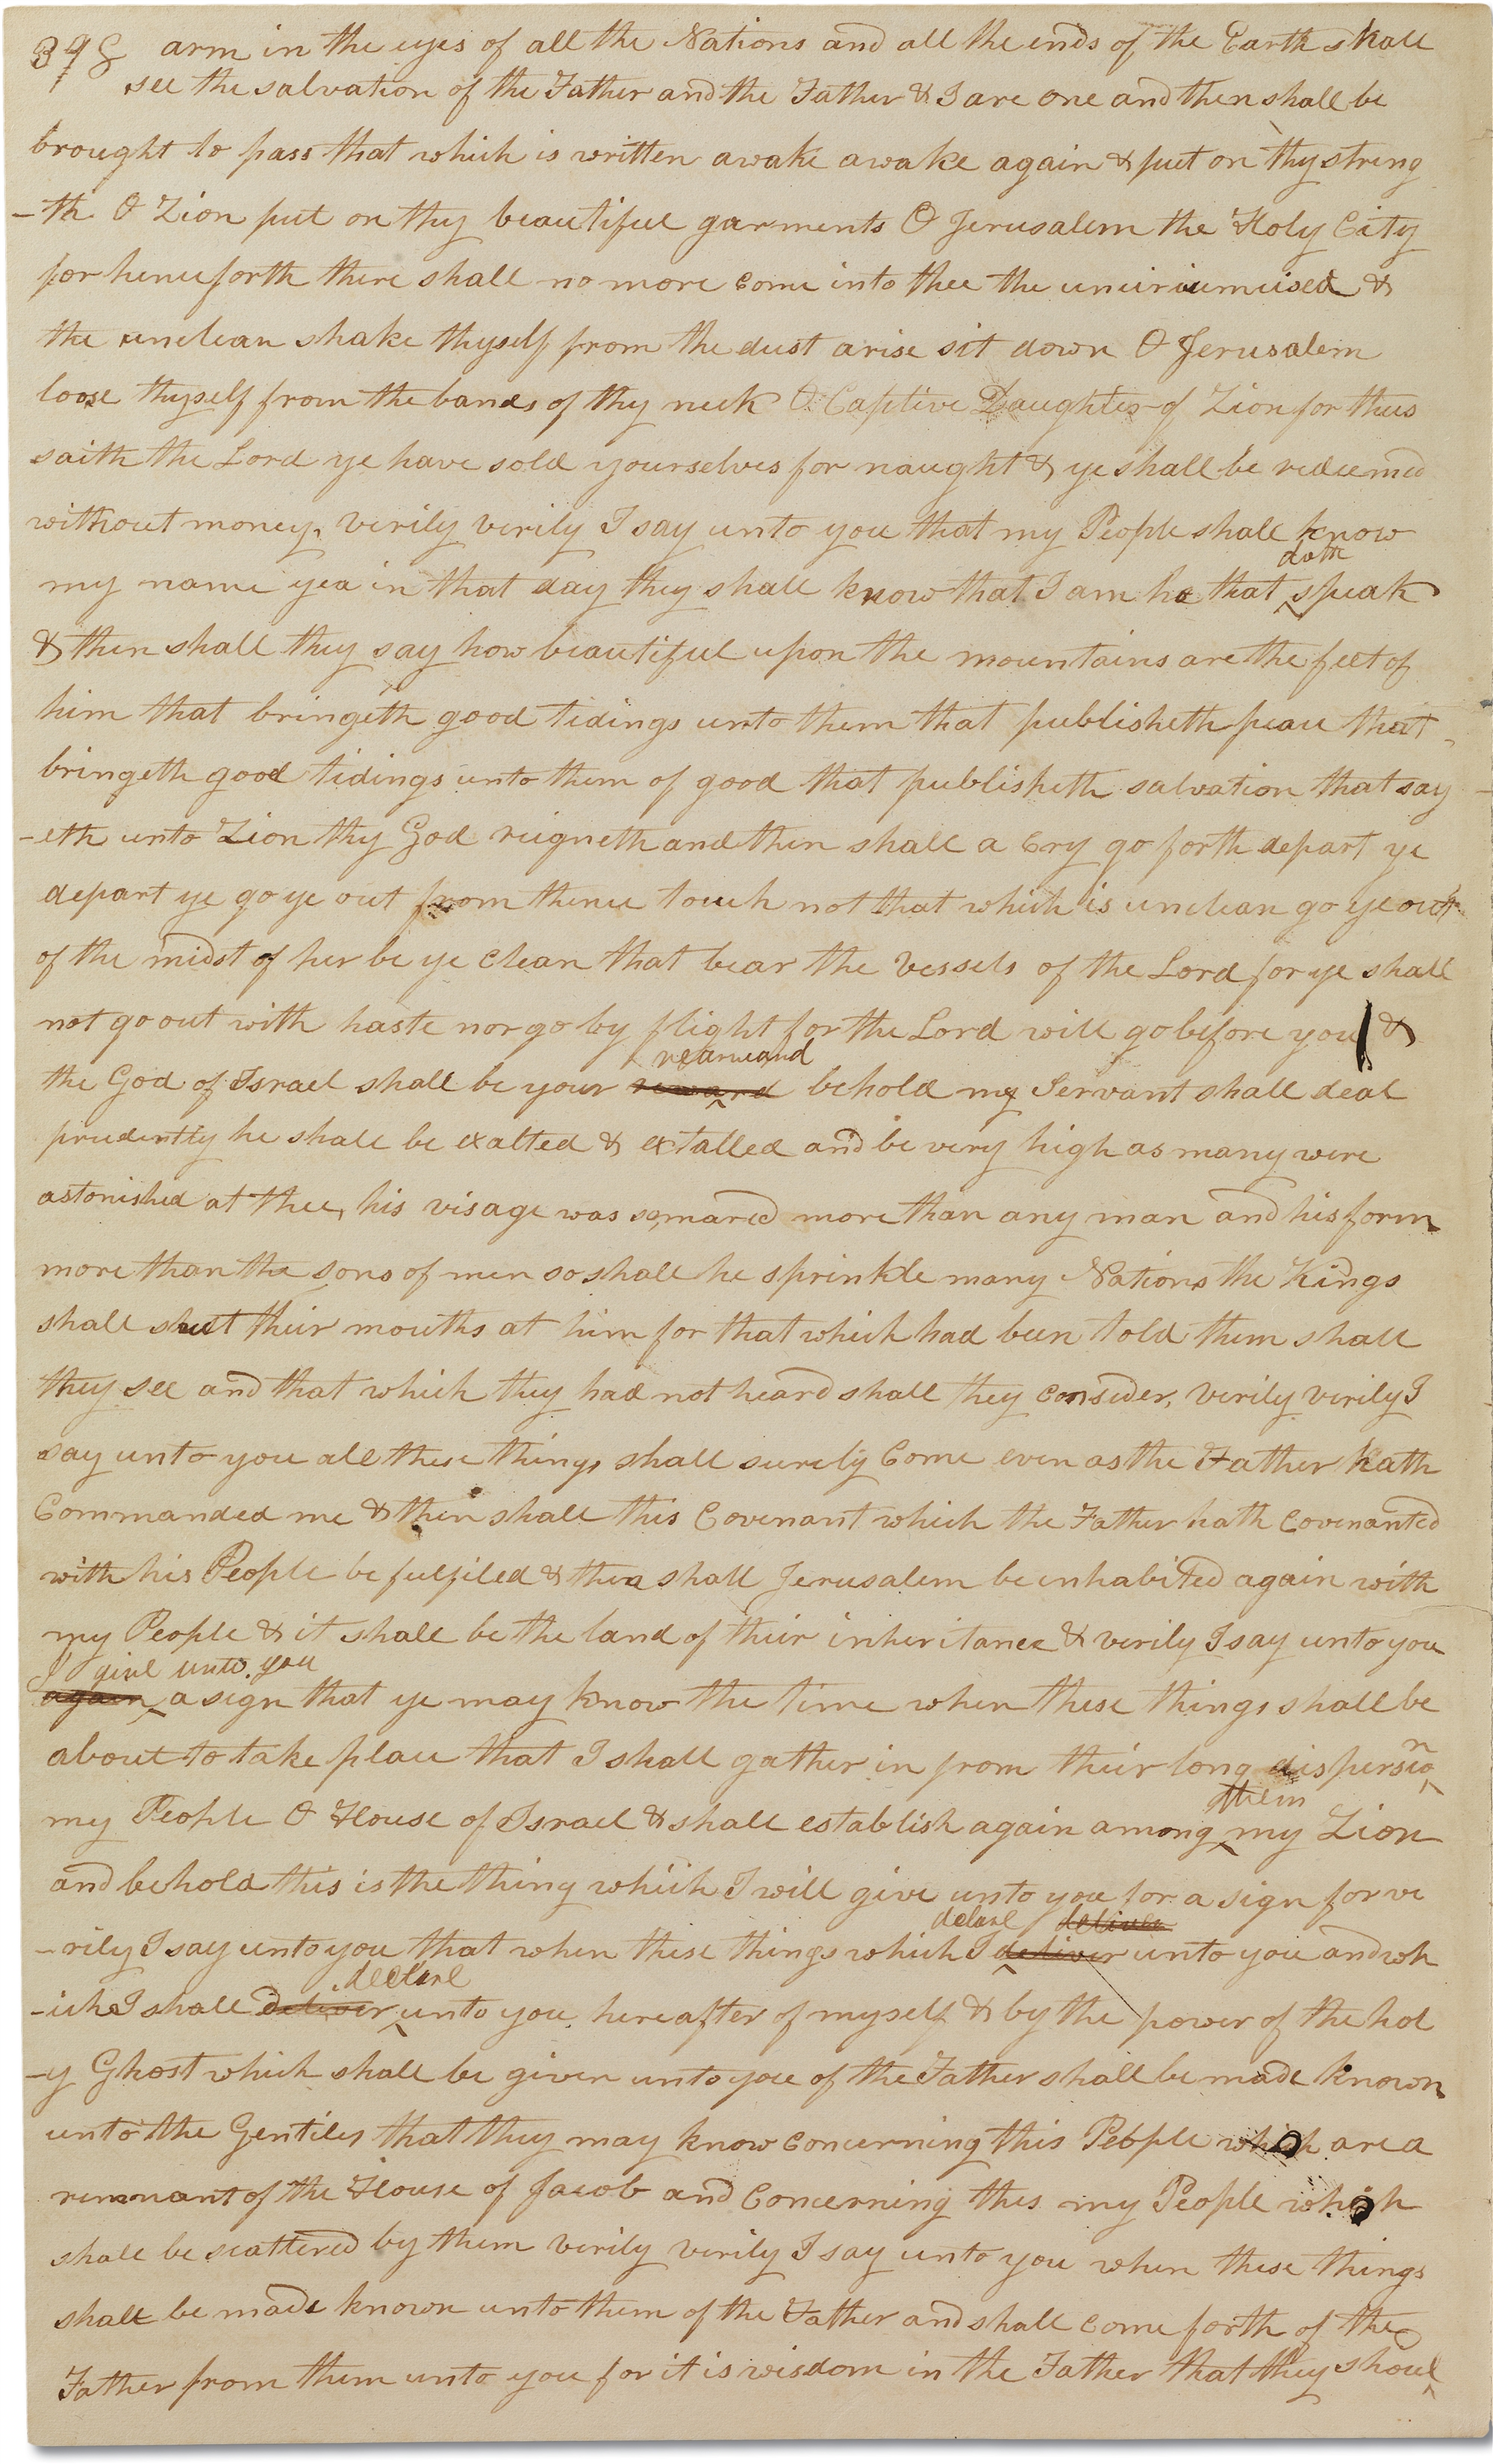 398 arm in the eyes of all the Nations and all the ends of the Earth shall
see the salvation of the Father and the Father & I are one and then shall be
brought to pass that which is written awake awake again & put on thy streng
-th O Zion put on thy beautiful garments O Jerusalem the Holy City
for henceforth there shall no more come into thee the uncircumcised &
the unclean shake thyself from the dust arise sit down O Jerusalem
loose thyself from the bands of thy neck O Captive Daughter of Zion for thus
saith the Lord ye have sold yourselves for naught & ye shall be redeemed
without money, verily verily I say unto you that my People shall know
doth
my name yea in that day they shall know that I am he that speak
& then shall they say how beautiful upon the mountains are the feet of
him that bringeth good tidings unto them that publisheth peace that
bringeth good tidings unto them of good that publisheth salvation that say
-eth unto Zion thy God reigneth and then shall a Cry go forth depart ye
depart ye go ye out from thence touch not that which is unclean go ye out
of the midst of her be ye Clean that bear the vessels of the Lord for ye shall
not go out with haste nor go by flight for the Lord will go before you &
rearward
the God of Israel shall be your reward behold my Servant shall deal
prudently he shall be exalted & extalled and be very high as many were
astonished at thee, his visage was so mared more than any man and his form
more than the sons of men so shall he sprinkle many Nations the Kings
shall shut their mouths at him for that which had been told them shall
they see and that which they had not heard shall they consider, verily verily I
say unto you all these things shall surely Come even as the Father hath
Commanded me & then shall this Covenant which the Father hath Covenanted
with his People be fulfiled & then shall Jerusalem be inhabited again with
my People & it shall be the land of their inheritance & verily I say unto you
I give unto you
again a sign that ye may know the time when these things shall be
about to take place that I shall gather in from their long dispersion
them
my People O House of Israel & shall establish again among my Zion
and behold this is the thing which I will give unto you for a sign for ve
declare deliver
-rily I say unto you that when these things which I deliver unto you and wh
declare
-ich I shall deliver unto you hereafter of myself & by the power of the hol
-y Ghost which shall be given unto you of the Father shall be made known
unto the Gentiles that they may know Concerning this People which are a
remnant of the House of Jacob and Concerning this my People which
shall be scattered by them verily verily I say unto you when these things
shall be made known unto them of the Father and shall come forth of the
Father from them unto you for it is wisdom in the Father that they shoul